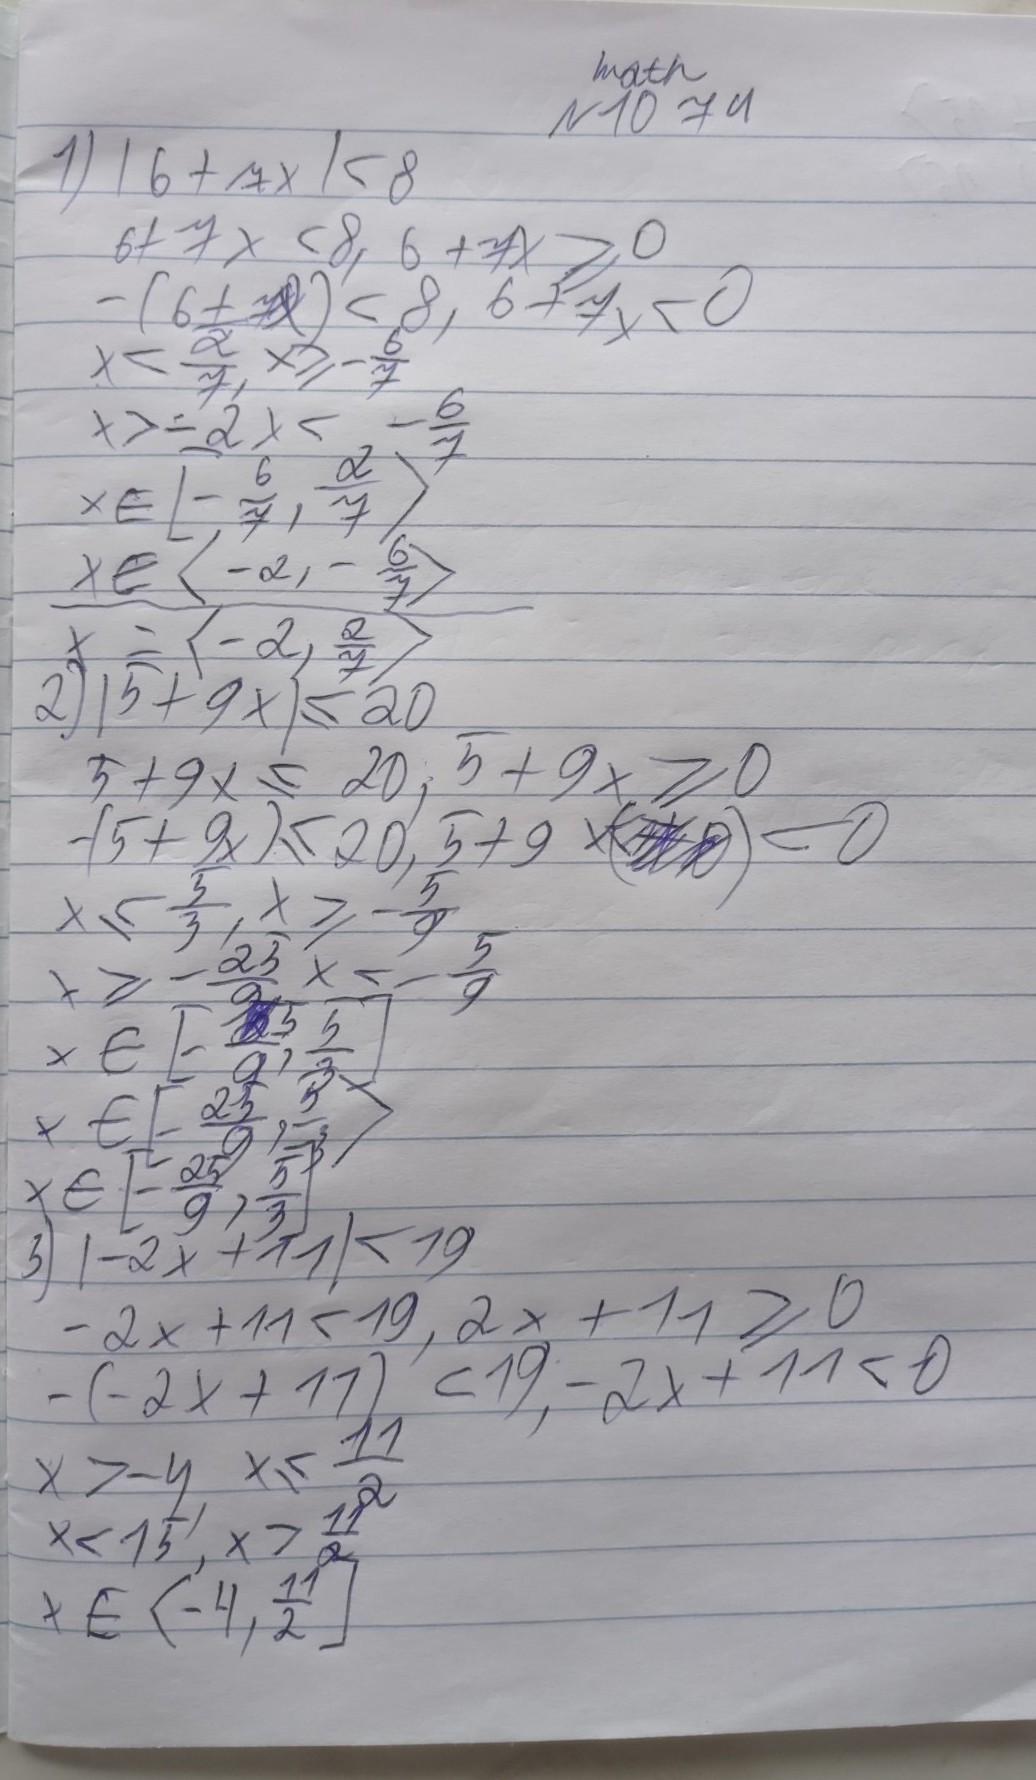 math
N10 74
1) |6+7x|<8
6+7x<8, 6+7x⩾0
-(6+7x)<8, 6+7x<0
x<2/7, x⩾-6/7
x>-2 x< -6/7
x∈[-6/7, 2/7⟩
x∈⟨-2, -6/7⟩
x = ⟨-2, 2/7⟩
2) |5+9x|⩽20
5+9x⩽20, 5+9x⩾0
-(5+9x)⩽20, 5+9x<0
x⩽5/3, x⩾-5/9
x⩾-25/9 x<-5/9
x∈[- 5/9, 5/3]
x∈[-25/9, 5/3⟩
x∈[-25/9, 5/3]
3) |-2x+11|<19
-2x+11<19, 2x+11⩾0
-(-2x+11) <19, -2x+11<0
x>-4, x⩽11/2
x<15, x>11/2
x∈⟨-4, 11/2]